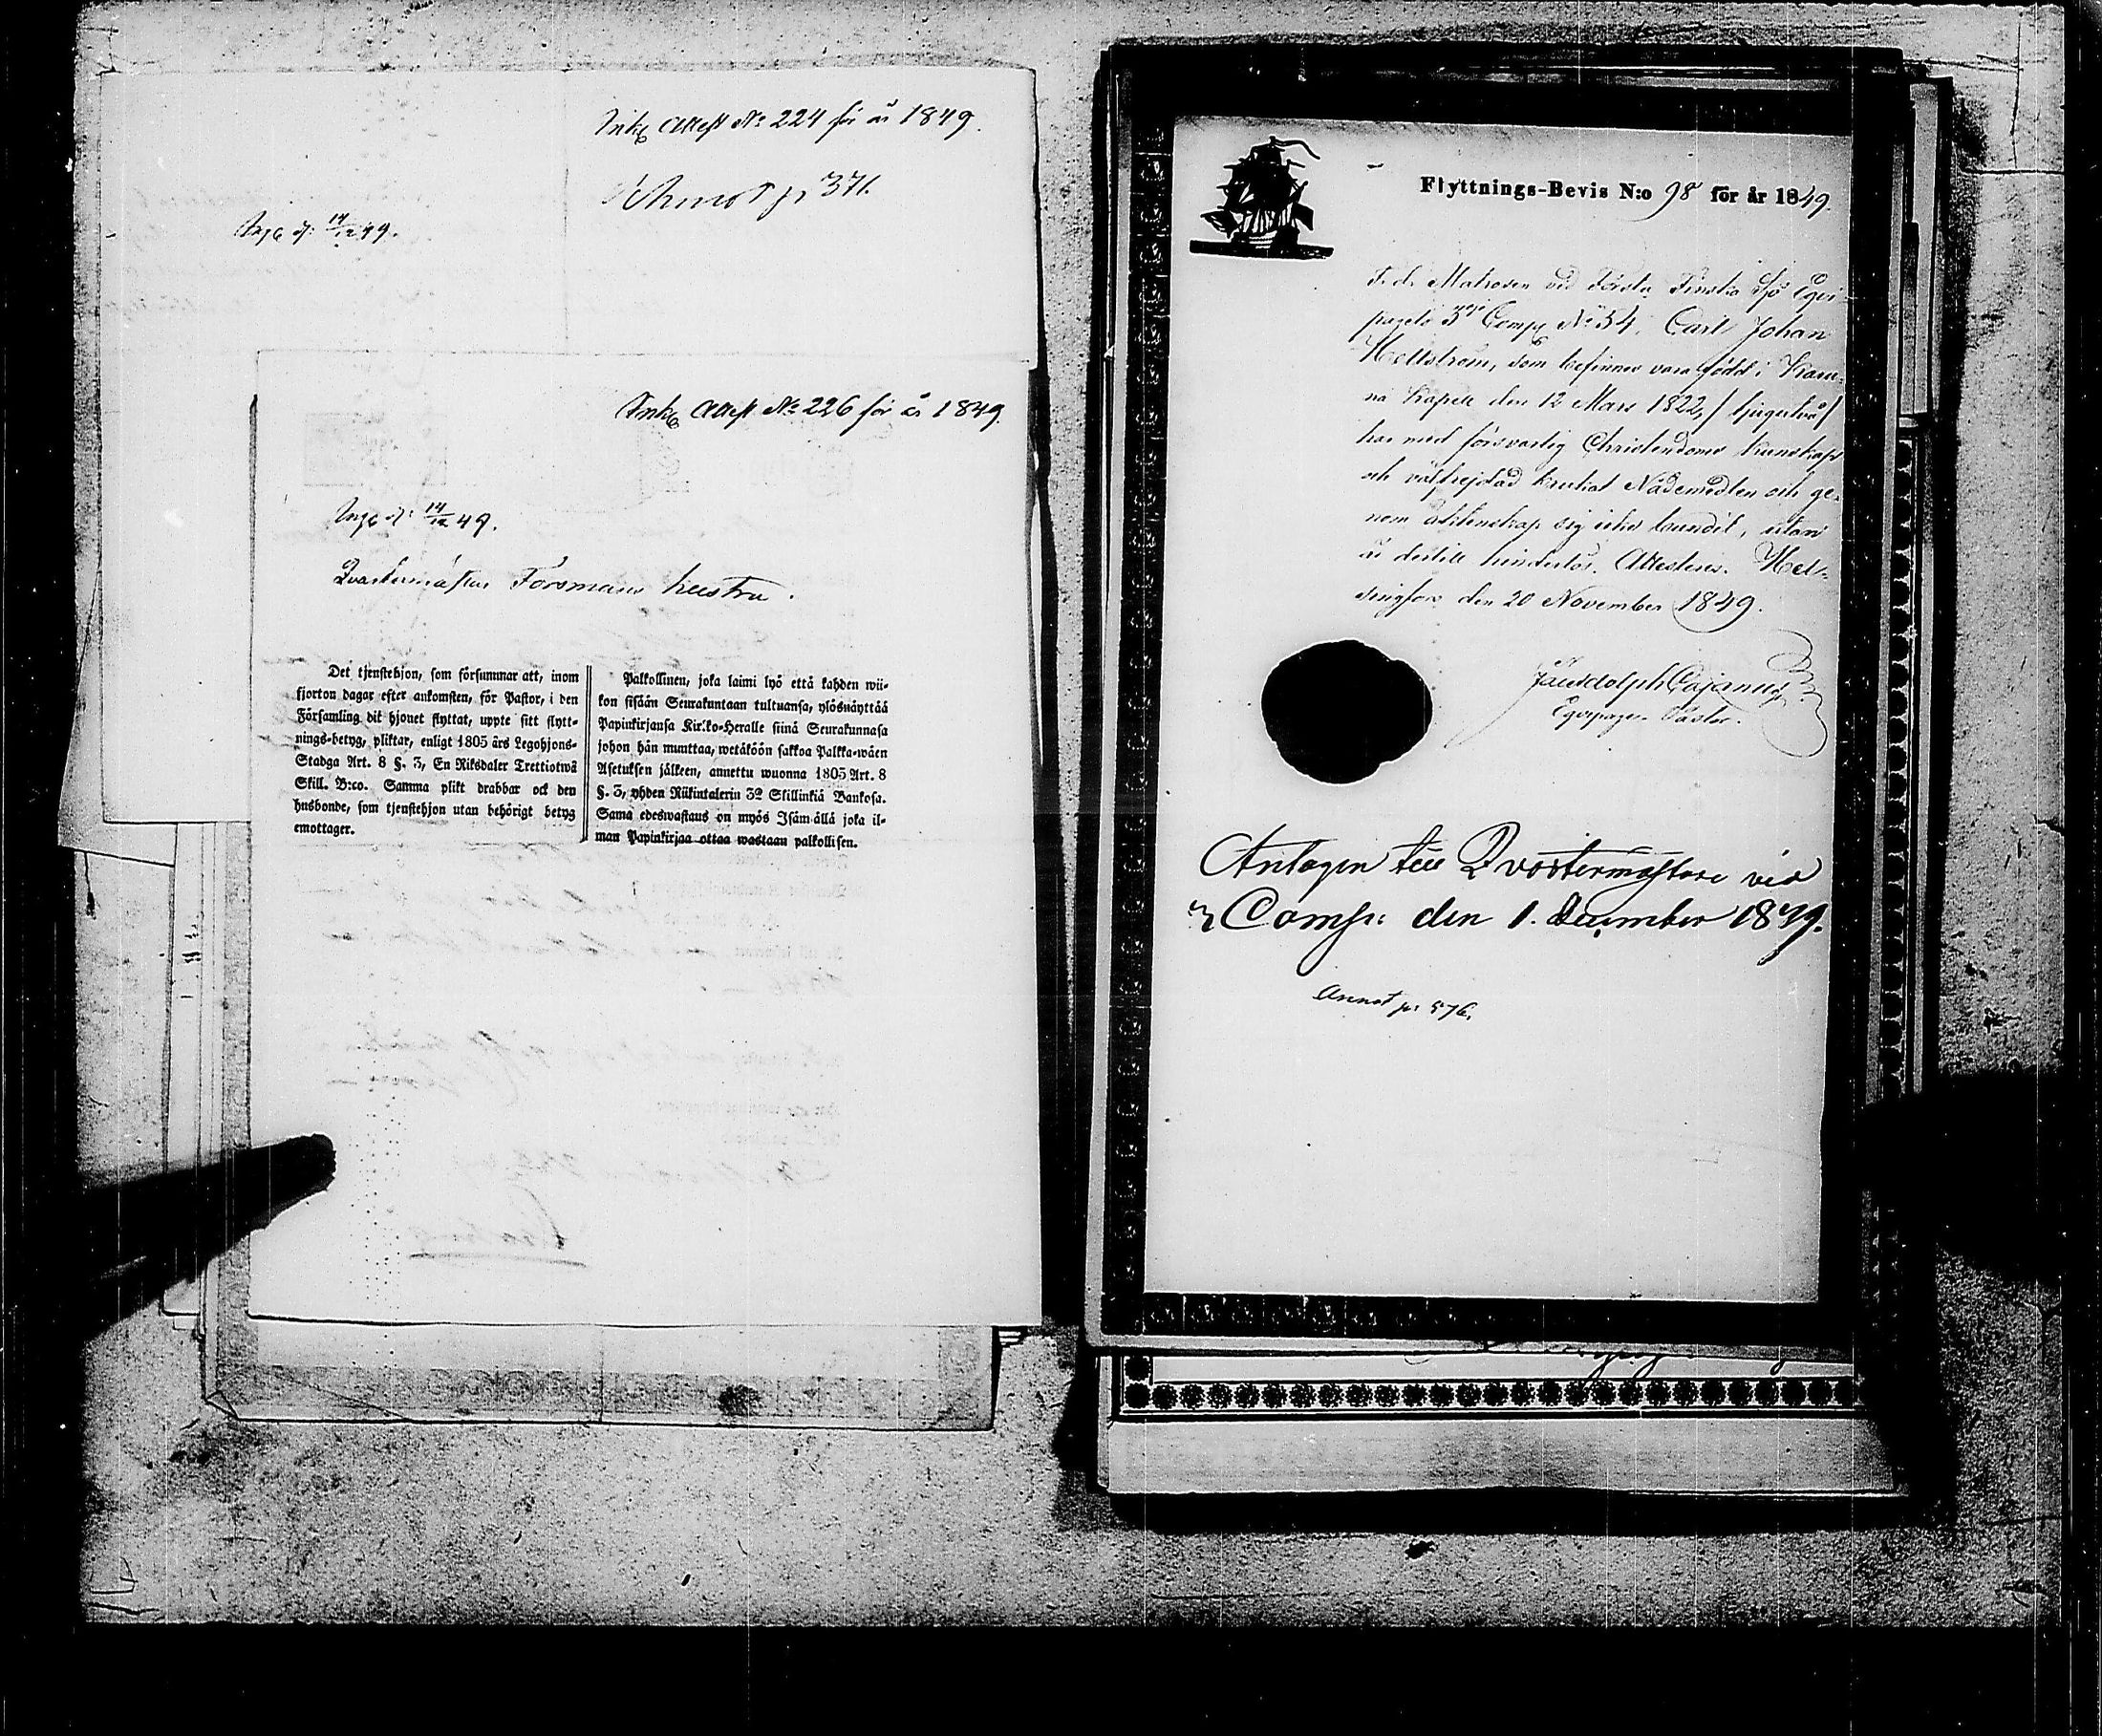 Inkg Attest No 224 för år 1849.
Annot p 371.
Ing. d: 14/12 49.
Inkg Attest No 226 för år 1849.
Ing. d: 14/12 49.
Qvartermästar Forsmans hustru.
Det tjenstehjon, som försummar att, inom
fjorton dagar efter ankomsten, för Pastor, i den
Församling dit hjonet flyttat, uppte sitt flytt-
nings-betyg, pliktar, enligt 1805 års Legohjons-
Stadga Art. 8 §. 3, En Riksdaler Trettiotwå
Skill. B:co. Samma plikt drabbar ock den
husbonde, som tjenstehjon utan behörigt betyg
emottager.
Palkollinen, joka laimi lyö että kahden wii-
kon sisään Seurakuntaan tultuansa, ylösnäyttää
Papinkirjansa Kir:ko-Heralle siinä Seurakunnasa
johon hän muuttaa, wetäköön sakkoa Palkka-wäen
Asetuksen jälkeen, annettu wuonna 1805 Art. 8
§. 3, yhden Riikintalerin 32 Skillinkiä Bankosa.
Sama edeswastaus on myös Isäm-ällä joka il-
man Papinkirjaa ottaa wastaan palkollisen.
Flyttnings-Bevis N:o 98 för år 1849.
F. d. Matrosen vid Första Finska Sjö Equi-
pagets 3dje Comp. No 54, Carl Johan
Hellström, som befinnes vara född i Karu-
na Kapell den 12 Mars 1822, / tjugutvå /
har med försvarlig Christendoms kunskap
och välfrejdad brukat Nådemedlen och ge-
nom äktenskap sig icke bundit, utan
är dertill hinderlös. Attesteras. Hel-
singfors den 20 November 1849.
Cajanus
Equipages Pastor.
Antagen till Qvartermästare vid
3 Comp: den 1. December 1849.
Annot p: 576.